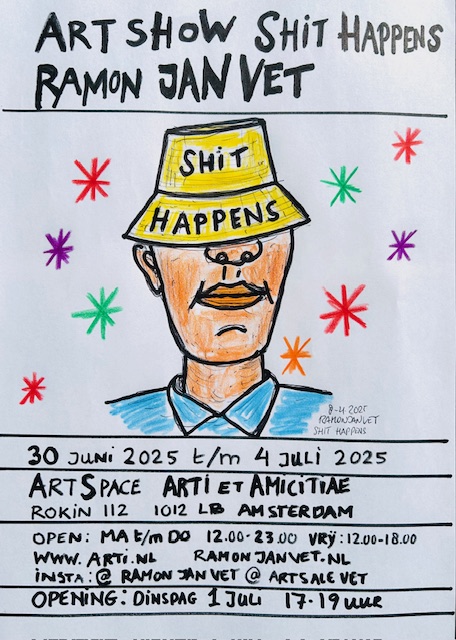 ART SHOW SHIT HAPPENS
RAMON JAN VET
SHIT
HAPPENS
8-4-2025
RAMON JAN VET
SHIT HAPPENS
30 JUNI 2025 t/m 4 JULI 2025
ARTSPACE ARTI ET AMICITIAE
ROKIN 112 1012 LB AMSTERDAM
OPEN: MA t/m DO 12.00-23.00 VRY: 12.00-18.00
WWW.ARTI.NL RAMONJANVET.NL
INSTA: @ RAMON JAN VET @ ARTSALE VET
OPENING: DINSDAG 1 JULI 17-19 UUR